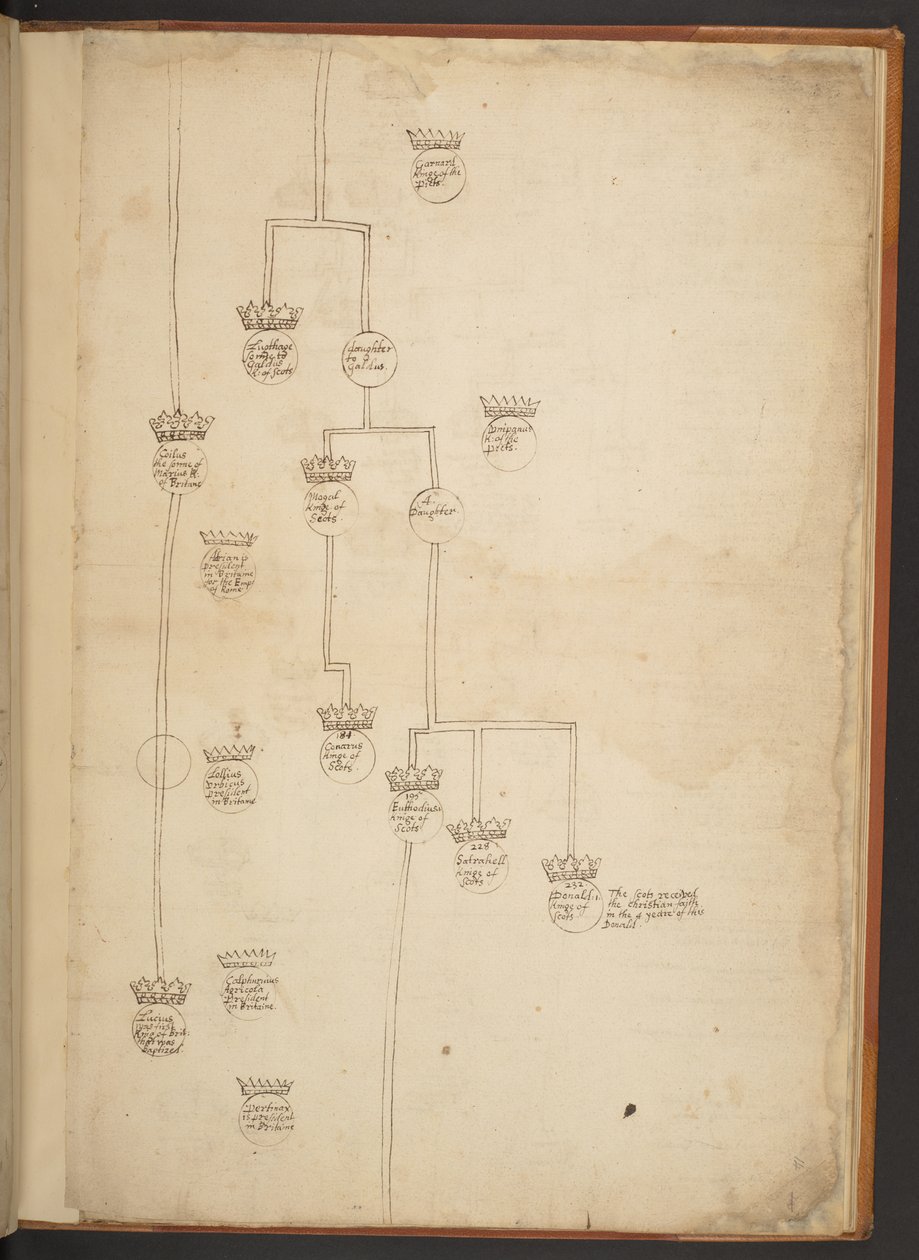 Garnard
kinge of the
Picts.
Lugthage
sonne to
Galdus
K: of Scots
daughter
to
Galdus.
K: of the
Picts.
Coilus
the sonne of
Marius K:
of Britane
Mogul
kinge of
Scots.
A
Daughter.
president
in Britaine
for the Emp:
of Rome
184
Conarus
kinge of
Scots.
Lollius
Urbicus
president
in Britane
195
kinge of
Scots
228
Satrahell
kinge of
Scots
232.
Donald: 1.
kinge of
Scots
The Scots received
the Christian faith
in the 4 yeare of this
Donald.
Calphurnius
Agricola
President
in Britaine.
Lucius
was first
King of Brit:
that was
baptized.
Pertinax
is president
in Britaine